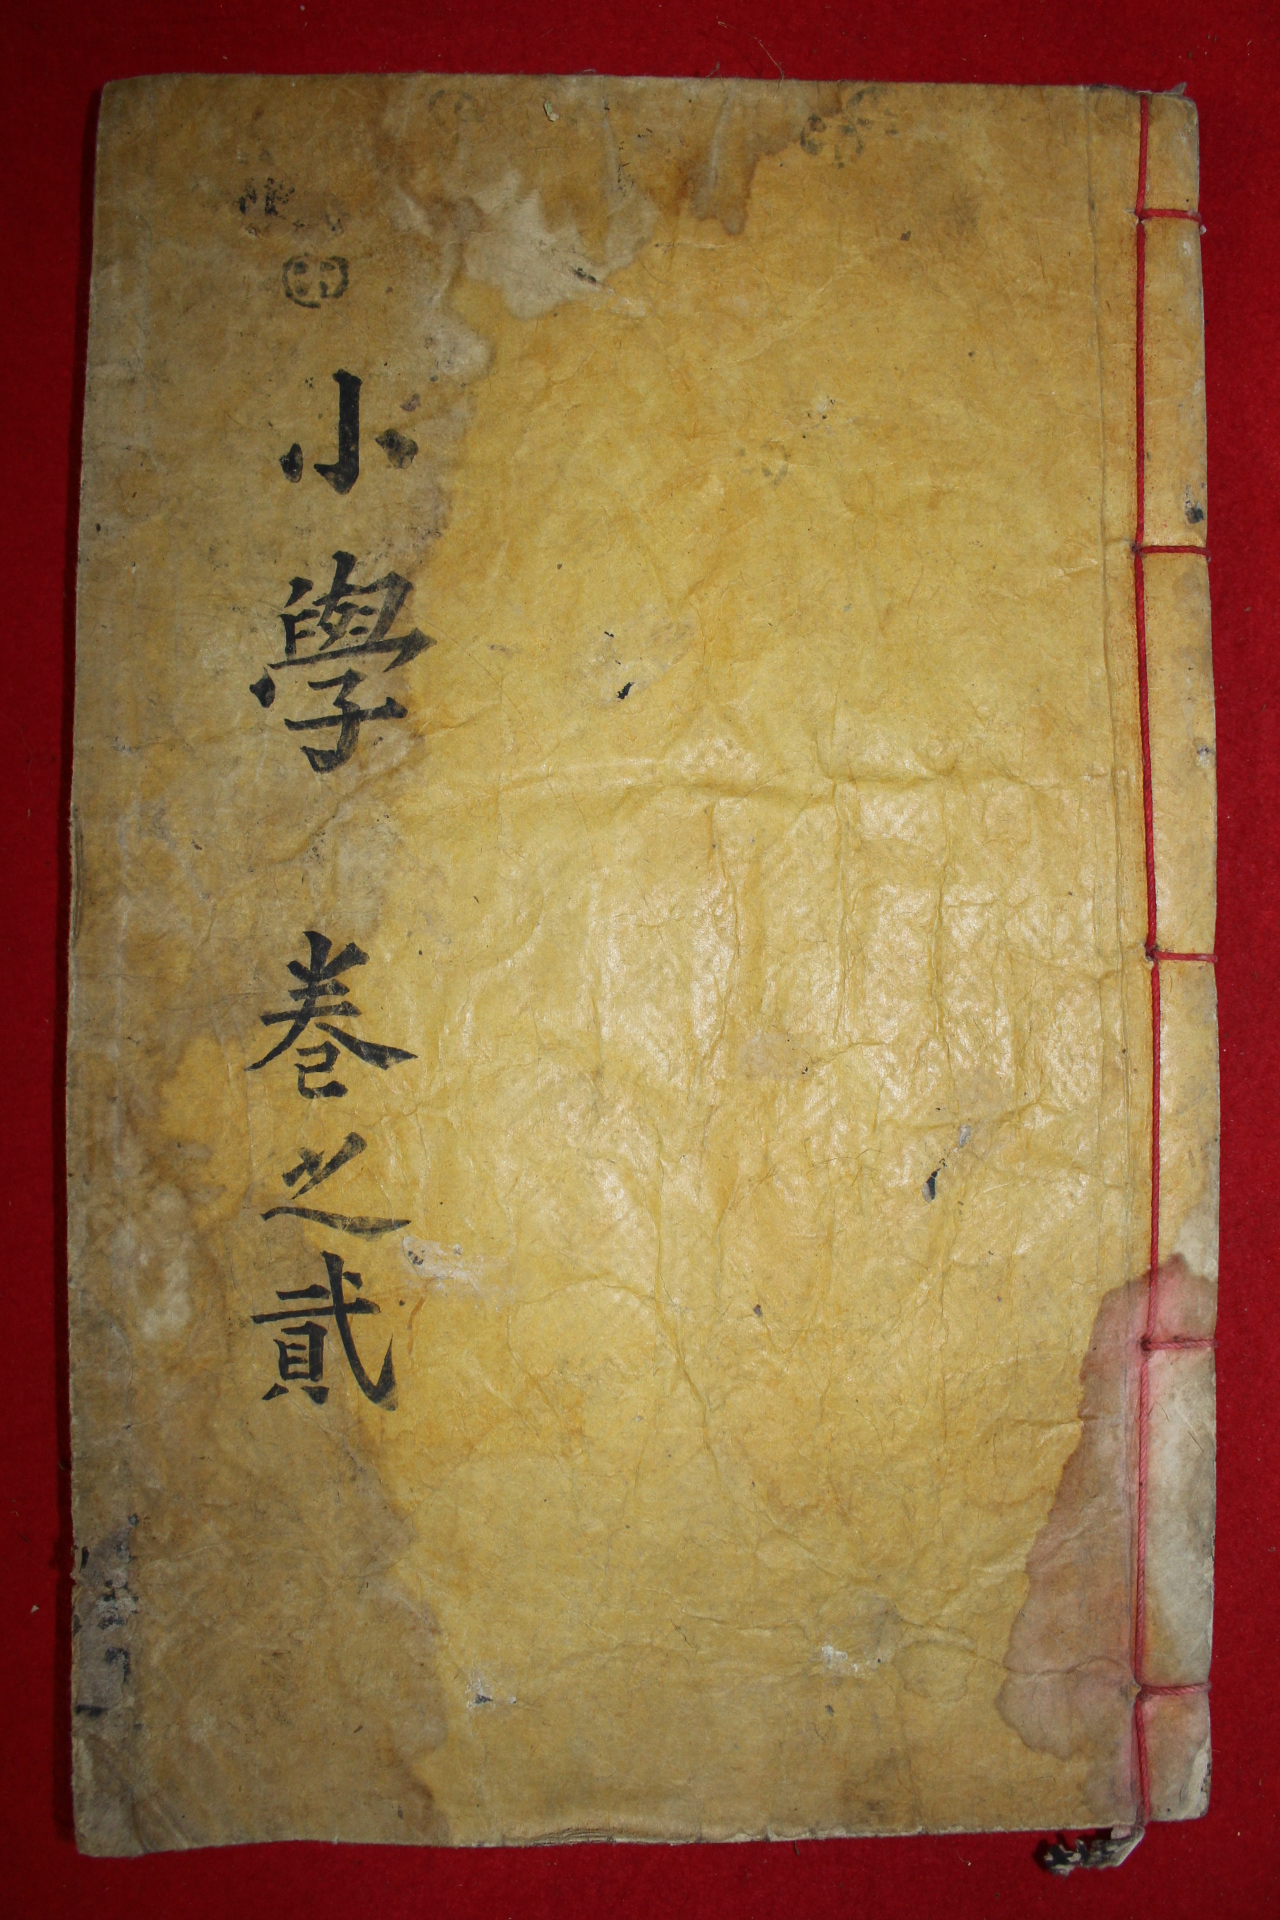 小學 卷之貳